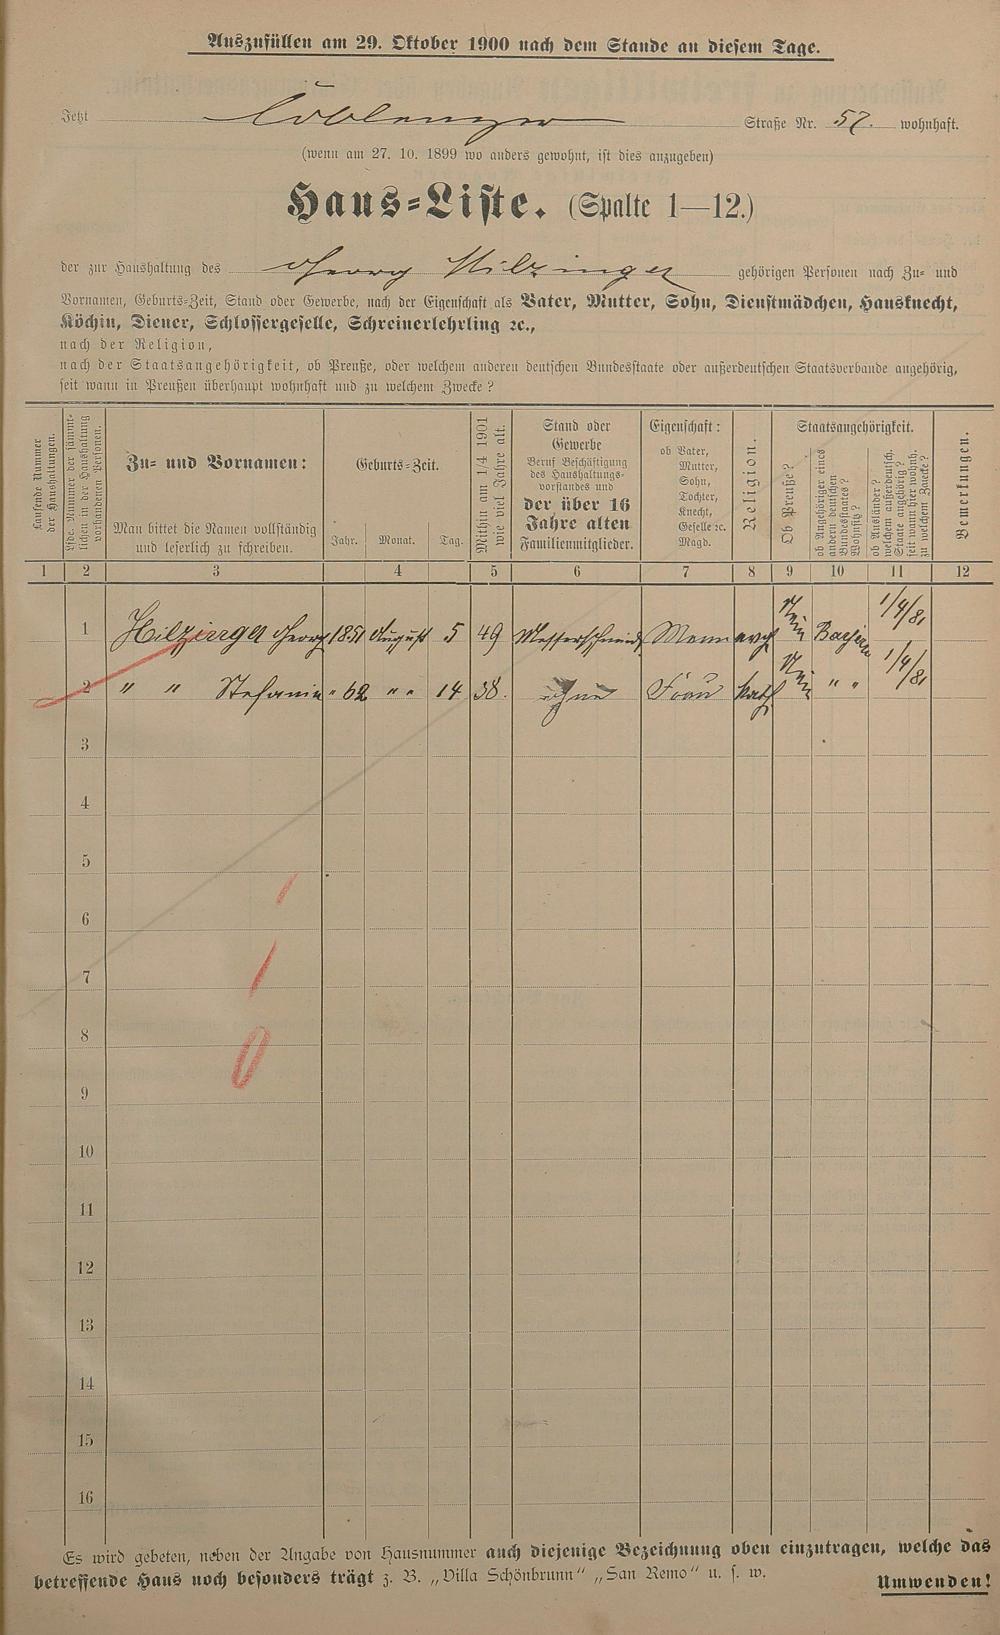 Auszufüllen am 29. Oktober 1900 nach dem Stande an diesem Tage.
Jetzt Coblenzer Straße Nr. 57. wohnhaft.
(wenn am 27. 10. 1899 wo anders gewohnt, ist dies anzugeben)
Haus-Liste. (Spalte 1—12.)
der zur Haushaltung des Georg Hilzinger gehörigen Personen nach Zu- und
Vornamen, Geburts-Zeit, Stand oder Gewerbe, nach der Eigenschaft als Vater, Mutter, Sohn, Dienstmädchen, Hausknecht,
Köchin, Diener, Schlossergeselle, Schreinerlehrling ꝛc.,
nach der Religion,
nach der Staatsangehörigkeit, ob Preuße, oder welchem anderen deutschen Bundesstaate oder außerdeutschen Staatsverbande angehörig,
seit wann in Preußen überhaupt wohnhaft und zu welchem Zwecke?
Laufende Nummer
der Haushaltungen.
Lfde. Nummer der sämmt-
lichen in der Haushaltung
vorhandenen Personen.
Zu- und Vornamen:
Man bittet die Namen vollständig
und leserlich zu schreiben.
Geburts-Zeit.
Jahr. Monat. Tag.
Mithin am 1/4 1901
wie viel Jahre alt.
Stand oder
Gewerbe
Beruf Beschäftigung
des Haushaltungs-
vorstandes und
der über 16
Jahre alten
Familienmitglieder.
Eigenschaft:
ob Vater,
Mutter,
Sohn,
Tochter,
Knecht,
Geselle ꝛc.
Magd.
Religion.
Staatsangehörigkeit.
Ob Preuße?
ob Angehöriger eines
andern deutschen
Bundesstaates?
Wohnsitz?
ob Ausländer?
welchem außerdeutsch.
Staate angehörig?
seit wann hier wohnh.
zu welchem Zwecke?
Bemerkungen.
1 2 3 4 5 6 7 8 9 10 11 12
1 Hilzinger Georg 1851 August 5 49 Messerschmied Mann evg Nein Bayern 1/4/81
2 " " Stefanie " 62 " " 14 38. ohne Frau kath Nein " " 1/4/81
3
4
5
6
7
8
9
10
11
12
13
14
15
16
Es wird gebeten, neben der Angabe von Hausnummer auch diejenige Bezeichnung oben einzutragen, welche das
betreffende Haus noch besonders trägt z. B. „Villa Schönbrunn" „San Remo" u. s. w.
Umwenden!